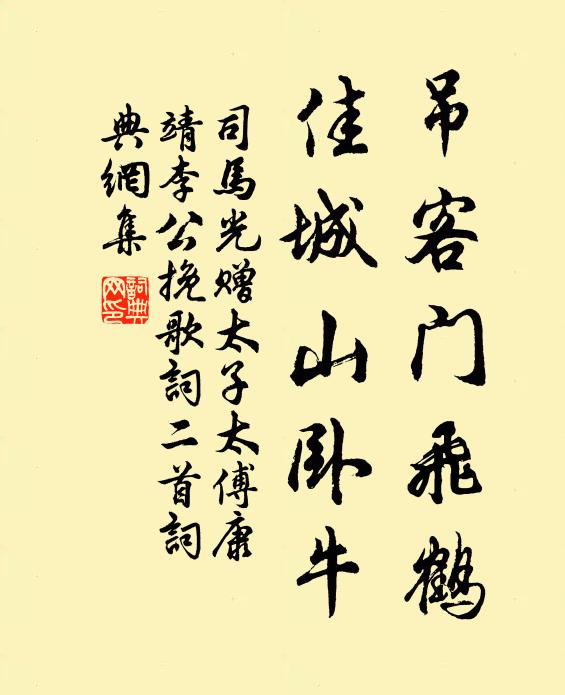 吊客门飛鶴
佳城山卧牛
司馬光赠太子太傅康
靖李公挽歌詞二首詞
典網集
詞典
网印